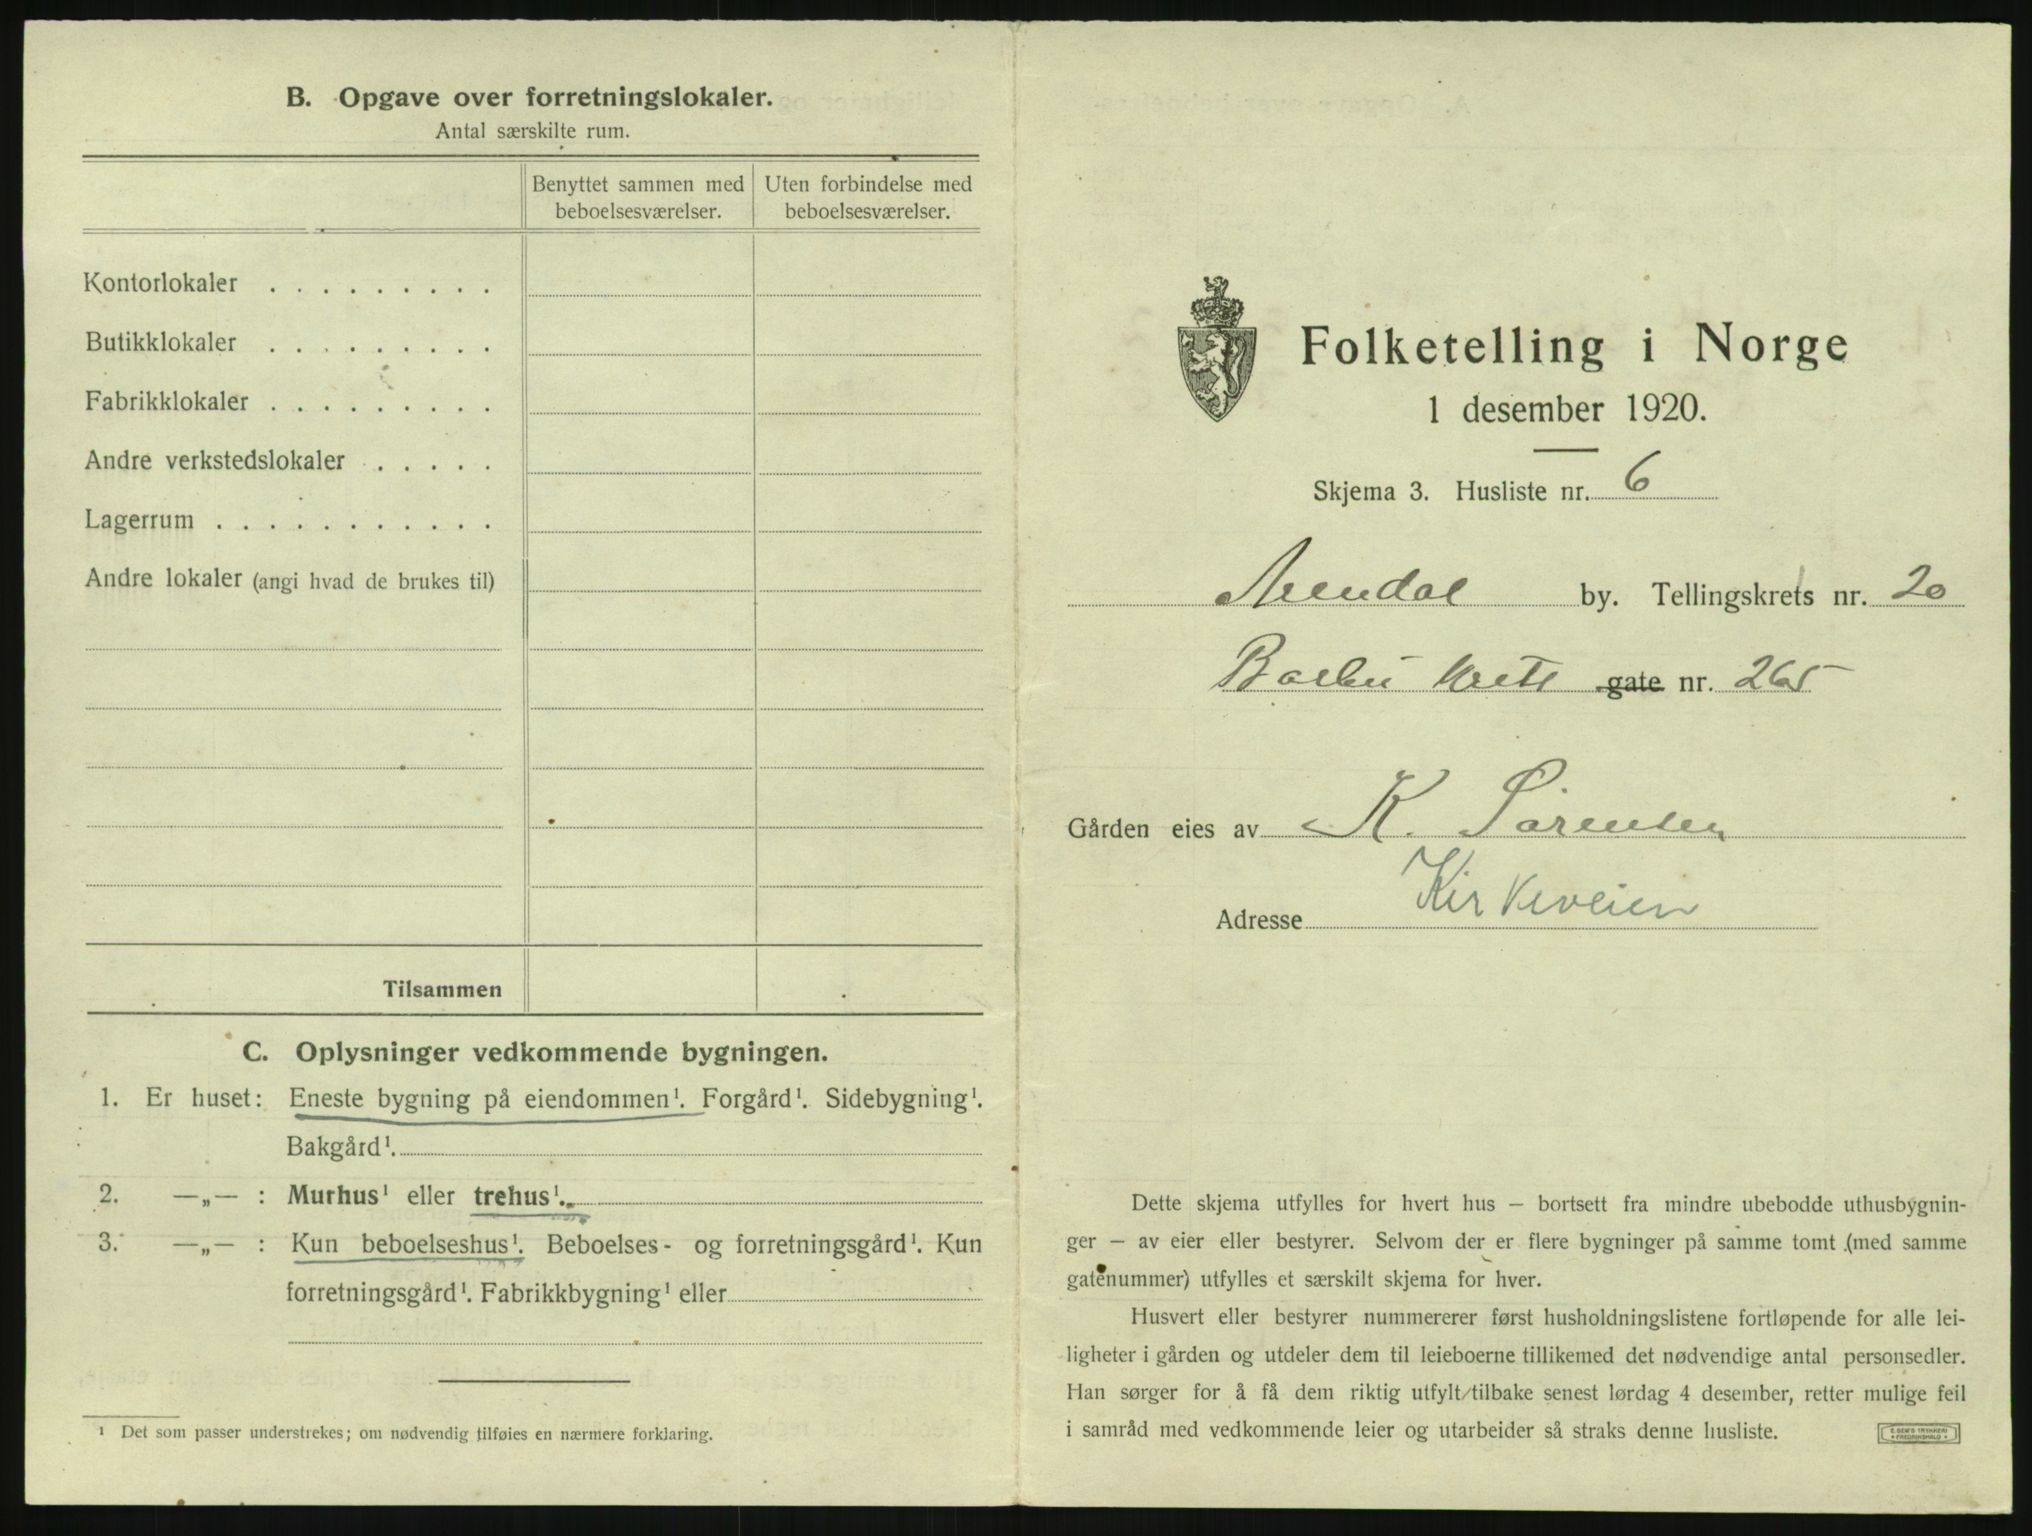 B. Opgave over forretningslokaler.
Antal særskilte rum.
Benyttet sammen med
beboelsesværelser.
Uten forbindelse med
beboelsesværelser.
Kontorlokaler . . . . . . . . .
Butikklokaler . . . . . . . . .
Fabrikklokaler . . . . . . . . .
Andre verkstedslokaler . . . . .
Lagerrum . . . . . . . . . . .
Andre lokaler (angi hvad de brukes til)
Tilsammen
C. Oplysninger vedkommende bygningen.
1. Er huset: Eneste bygning på eiendommen¹. Forgård¹. Sidebygning¹.
Bakgård¹.
2. —„— : Murhus¹ eller trehus¹.
3. —„— : Kun beboelseshus¹. Beboelses- og forretningsgård¹. Kun
forretningsgård¹. Fabrikkbygning¹ eller
¹ Det som passer understrekes; om nødvendig tilføies en nærmere forklaring.
Folketelling i Norge
1 desember 1920.
Skjema 3. Husliste nr. 6
Arendal by. Tellingskrets nr. 20
Barbu gate nr. 265
Gården eies av K. Sørensen
Adresse Kirkeveien
Dette skjema utfylles for hvert hus – bortsett fra mindre ubebodde uthusbygnin-
ger – av eier eller bestyrer. Selvom der er flere bygninger på samme tomt (med samme
gatenummer) utfylles et særskilt skjema for hver.
Husvert eller bestyrer nummererer først husholdningslistene fortløpende for alle lei-
ligheter i gården og utdeler dem til leieboerne tillikemed det nødvendige antal personsedler.
Han sørger for å få dem riktig utfylt tilbake senest lørdag 4 desember, retter mulige feil
i samråd med vedkommende leier og utarbeider så straks denne husliste.
E. SEM'S TRYKKERI
FREDRIKSHALD